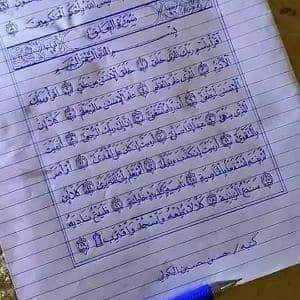 أليس الله بأحكم الحكمين
سورة العلق
بسم الله الرحمن الرحيم
اقرأ باسم ربك الذي خلق ١ خلق الإنسن من علق ٢ اقرأ وربك
الأكرم ٣ الذي علم بالقلم ٤ علم الإنسن ما لم يعلم ٥ كلا إن
الإنسن ليطغى ٦ أن رءاه استغنى ٧ إن إلى ربك الرجعى ٨ أرءيت
الذي ينهى ٩ عبدا إذا صلى ١٠ أرءيت إن كان على الهدى ١١ أو أمر
بالتقوى ١٢ أرءيت إن كذب وتولى ١٣ ألم يعلم بأن الله يرى ١٤ كلا لئن
لم ينته لنسفعا بالناصية ١٥ ناصية كذبة خاطئة ١٦ فليدع ناديه ١٧
سندع الزبانية ١٨ كلا لا تطعه واسجد واقترب ١٩
كتبه / حسن حسين